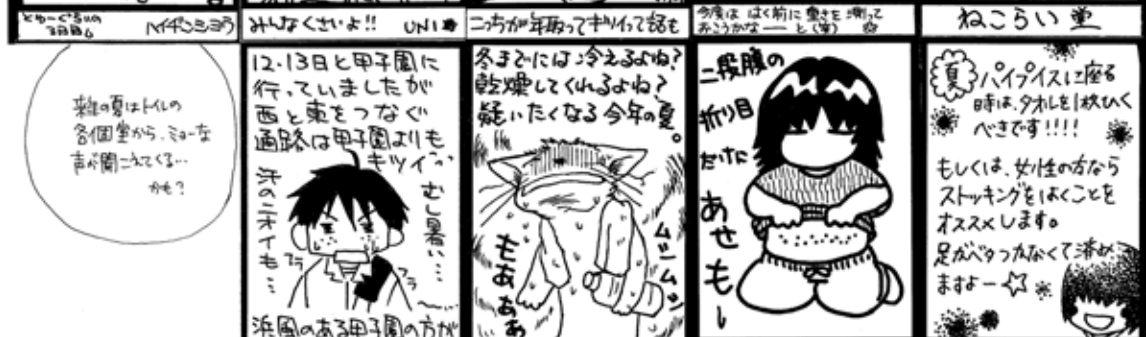 ハイテンショウ
雑の夏はトイレの
各個室から、ミョーな
声が聞こえてくる…
かも?
みんなくさいよ!! UNI
12・13日と甲子園に
行っていましたが
西と東をつなぐ
通路は甲子園よりも
キツイっ
むし暑い…
汗のニオイも…
フラ
フラ
浜風のある甲子園の方が
冬までには冷えるよね?
乾燥してくれるよね?
疑いたくなる今年の夏。
ムシムシ
もあぁぁ
今度は はく前に 重さを 測って
おこうかな―― と(笑)
二段腹の
折り目
だけに
あせも〜
ねこらい 堂
夏
パイプイスに座る
時は、タオルを1枚ひく
べきです!!!!
もしくは、女性の方なら
ストッキングをはくことを
オススメします。
足がベタつかなくて済み
ますよー☆